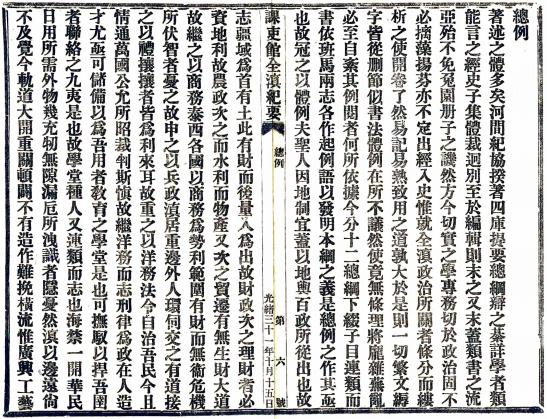 總例
著述之體多矣河間紀協揆著四庫提要總綱辯之綦詳學者類
能言之經史子集體裁迥別至於編輯則末之又末蓋類書之流
亞殆不免兔園册子之譏然方今切實之學專務切於政治固不
必摛藻揚芬亦不定出經入史惟就全滇政治所關者條分而縷
析之使開卷了然易記易熟致用之道孰大於是則一切繁文縟
字皆從刪節似書法體例在所不議然使竟無條理將龐雜紊亂
必至自紊其例閱者何所依據今分十二總綱下綴子目連類而
書依班馬兩志各作起例語以發明本綱之義是總例之作其亟
也故冠之以體例夫聖人因地制宜蓋以地輿百政所從出也故
課吏館全滇紀要
總例
第六號
光緒三十一年十月十五日
志疆域爲首有土此有財而後量入爲出故財政次之理財者必
資地利故農政次之水利而物產又次之貿遷有無生財大道
故繼之以商務泰西各國以商務爲勢利範圍有財而無衞危機
所伏智者憂之故申之以兵政滇居重邊外人環伺交之有道接
之以禮攘攘者皆爲利來耳故重之以洋務法令自治吾民今且
情通萬國公允所昭裁判斯愼故繼洋務而志刑律爲政在人造
才尤亟可儲備以爲吾用者敎育之學堂是也可撫馭以捍吾圉
者聯絡之九夷是也故學堂種人又連類而志也海禁一開華民
日用所需外物幾充牣無隙漏巵所洩識者隱憂然滇以邊遠尙
不及覺今軌道大開重關頓闢不有造作難挽橫流惟廣興工藝